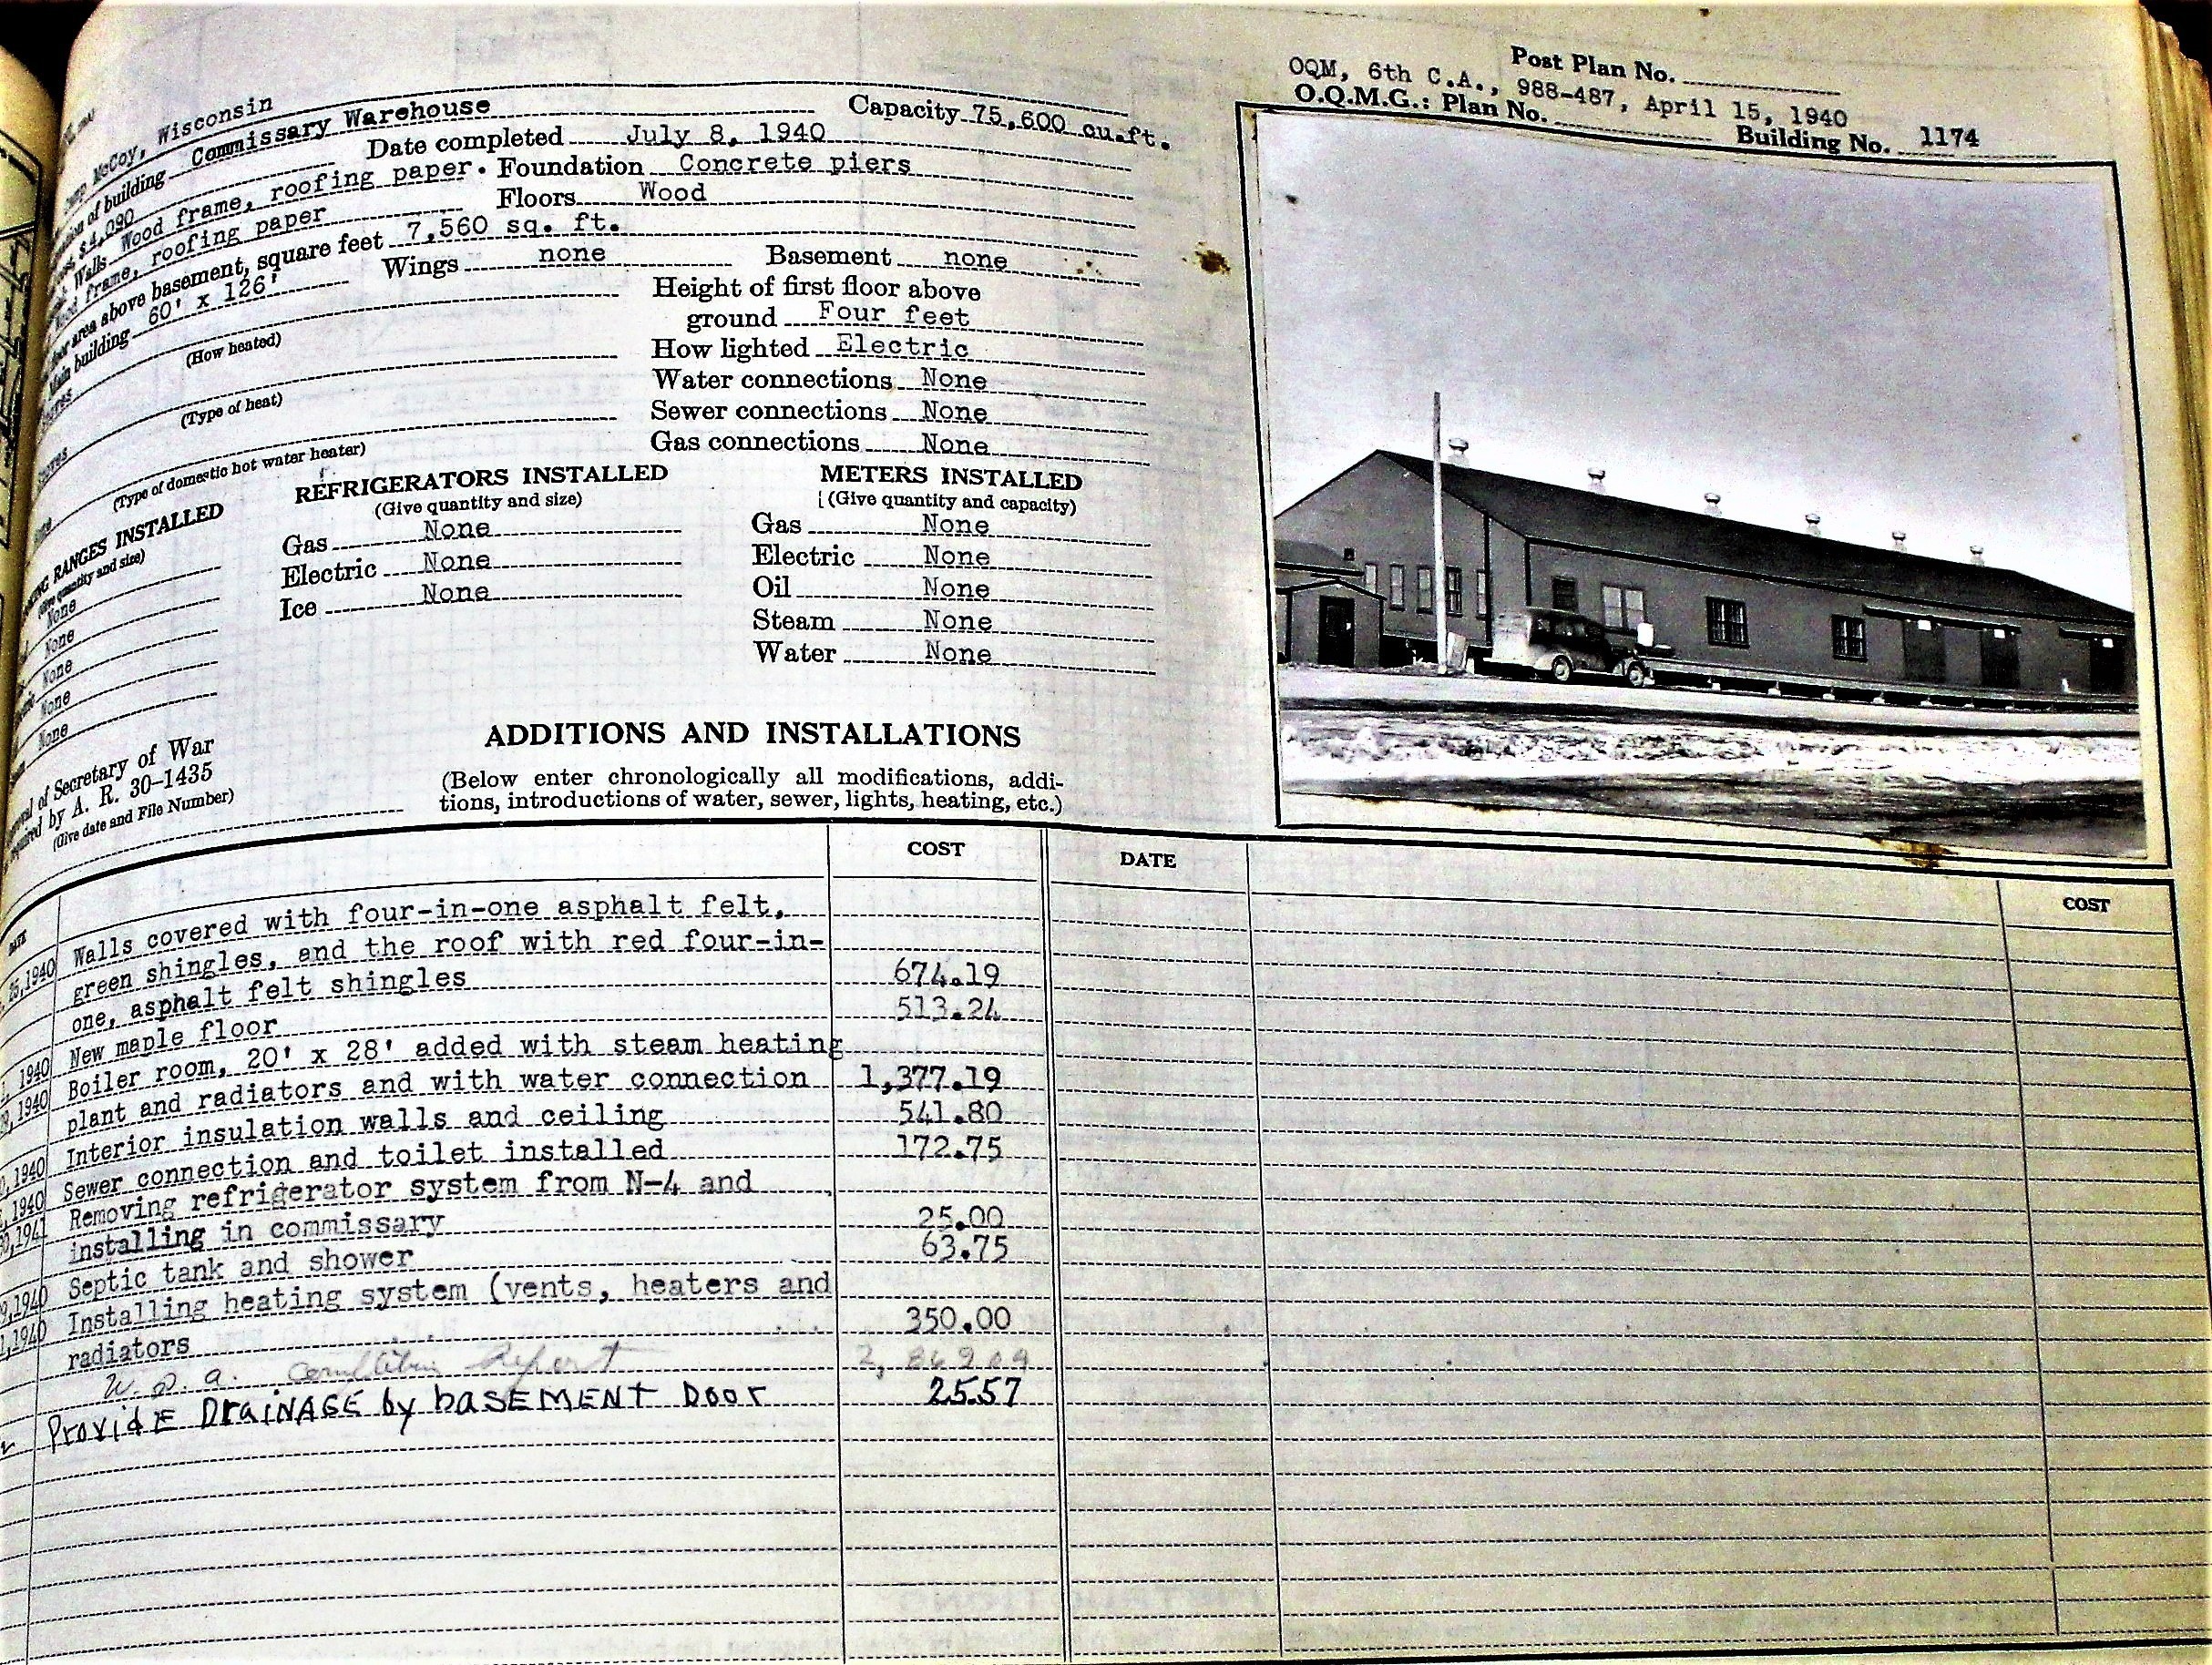 Post Plan No.
OQM, 6th C.A., 988-487, April 15, 1940
O.Q.M.G.: Plan No.
Building No. 1174
McCoy, Wisconsin
of building Commissary Warehouse
Capacity 75,600 cu.ft.
$4,090 Date completed July 8, 1940
Walls Wood frame, roofing paper. Foundation Concrete piers
frame, roofing paper Floors Wood
area above basement, square feet 7,560 sq. ft.
Main building 60' x 126' Wings none Basement none
Height of first floor above
ground Four feet
(How heated)
How lighted Electric
Water connections None
(Type of heat)
Sewer connections None
Gas connections None
(Type of domestic hot water heater)
RANGES INSTALLED
quantity and size)
None
None
None
None
None
REFRIGERATORS INSTALLED
(Give quantity and size)
Gas None
Electric None
Ice None
METERS INSTALLED
(Give quantity and capacity)
Gas None
Electric None
Oil None
Steam None
Water None
of Secretary of War
by A. R. 30-1435
(Give date and File Number)
ADDITIONS AND INSTALLATIONS
(Below enter chronologically all modifications, addi-
tions, introductions of water, sewer, lights, heating, etc.)
DATE COST DATE COST
25,1940 Walls covered with four-in-one asphalt felt,
green shingles, and the roof with red four-in-
one, asphalt felt shingles 674.19
1940 New maple floor 513.24
1940 Boiler room, 20' x 28' added with steam heating
plant and radiators and with water connection 1,377.19
1940 Interior insulation walls and ceiling 541.80
1940 Sewer connection and toilet installed 172.75
1941 Removing refrigerator system from N-4 and
installing in commissary 25.00
1940 Septic tank and shower 63.75
1940 Installing heating system (vents, heaters and
radiators 350.00
W. P. A. Report
ProvidE DrAiNAGE by bASEMENT Door 25.57